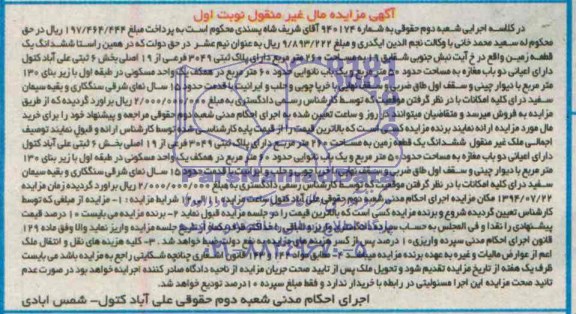 آگهی مزایده مال غیر منقول نوبت اول
در کلاسه اجرایی شعبه دوم حقوقی به شماره ۹۴۰۱۷۴ آقای شریف شاه پسندی محکوم است به پرداخت مبلغ ۱۹۷/۴۶۴/۴۴۴ ریال در حق
محکوم له سعید محمد خانی با وکالت نجم الدین ایگدری و مبلغ ۹/۸۹۳/۲۲۲ ریال به عنوان نیم عشر در حق دولت که در همین راستا ششدانگ یک
قطعه زمین واقع در خ آیت نبش جنوبی شقایق متر مربع دارای پلاک ثبتی ۳۰۴۹ فرعی از ۱۹ اصلی بخش ۶ ثبتی علی آباد کتول
دارای اعیانی دو باب مغازه به مساحت حدود ۵۰ متر مربع و یک باب نانوایی حدود ۶۰ متر مربع در همکف یک واحد مسکونی در طبقه اول با زیر بنای ۱۳۰
متر مربع با دیوار چینی و سقف اول طاق ضربی با خرپا چوبی و حلب و ایرانیت با قدمت حدود ۱۵ سال نمای شرقی سنگکاری و بقیه سیمان
سفید دارای کلیه امکانات با در نظر گرفتن موقعیت که توسط کارشناس رسمی دادگستری به مبلغ ۲/۰۰۰/۰۰۰/۰۰۰ ریال براورد گردیده که از طریق
مزایده به فروش میرسد و متقاضیان میتوانند در روز و ساعت تعیین شده به اجرای احکام مدنی شعبه دوم حقوقی مراجعه و پیشنهاد خود را برای خرید
مال مورد مزایده ارائه نمایند برنده مزایده کسی است که بالاترین قیمت را از قیمت پایه کارشناسی شده توسط کارشناس ارائه و قبول نمایند توصیف
اجمالی ملک غیر منقول ششدانگ یک قطعه زمین به مساحت متر مربع دارای پلاک ثبتی ۳۰۴۹ فرعی از ۱۹ اصلی بخش ۶ ثبتی علی آباد کتول
دارای اعیانی دو باب مغازه به مساحت حدود ۵۰ متر مربع و یک باب نانوایی حدود متر مربع در همکف یک واحد مسکونی در طبقه اول با زیر بنای ۱۳۰
متر مربع با دیوار چینی و سقف اول طاق ضربی حدود ۱۵ سال نمای شرقی سنگکاری و بقیه سیمان
سفید دارای کلیه امکانات با در نظر گرفتن موقعیت که توسط کارشناس رسمی دادگستری به مبلغ ۲/۰۰۰/۰۰۰/۰۰۰ ریال براورد گردیده زمان مزایده
۱۳۹۴/۰۷/۲۲ مکان مزایده اجرای احکام مدنی شعبه دوم حقوقی علی آباد کتول ساعت مزایده شرایط مزایده: ۱- مزایده از مبلغی که توسط
کارشناس تعیین گردیده شروع و برنده مزایده کسی است که بالاترین قیمت را در جلسه مزایده قبول نماید ۲- برنده مزایده می بایست ۱۰ درصد قیمت
پیشنهادی را نقدا و فی المجلس به حساب جلسه مزایده واریز نماید والا وفق ماده ۱۲۹
قانون اجرای احکام مدنی سپرده واریزی ۱۰ درصد پس از کسر دولت ضبط خواهد شد. ۳- کلیه هزینه های نقل و انتقال ملک
اعم از عوارض مالیات و غیره به عهده برنده مزایده قانون چنانچه شکایتی راجع به مزایده باشد می بایست
ظرف یک هفته از تاریخ مزایده تقدیم شود و تحویل ملک پس از تایید صحت جریان مزایده از ناحیه دادگاه صادر کننده اجرائیه خواهد بود در صورت عدم
تائید صحت مزایده این اجرا مسئولیتی در رابطه با خریدار ندارد و فقط مبلغ سپرده ۱۰ درصد تودیع خواهد شد.
اجرای احکام مدنی شعبه دوم حقوقی علی آباد کتول- شمس ابادی